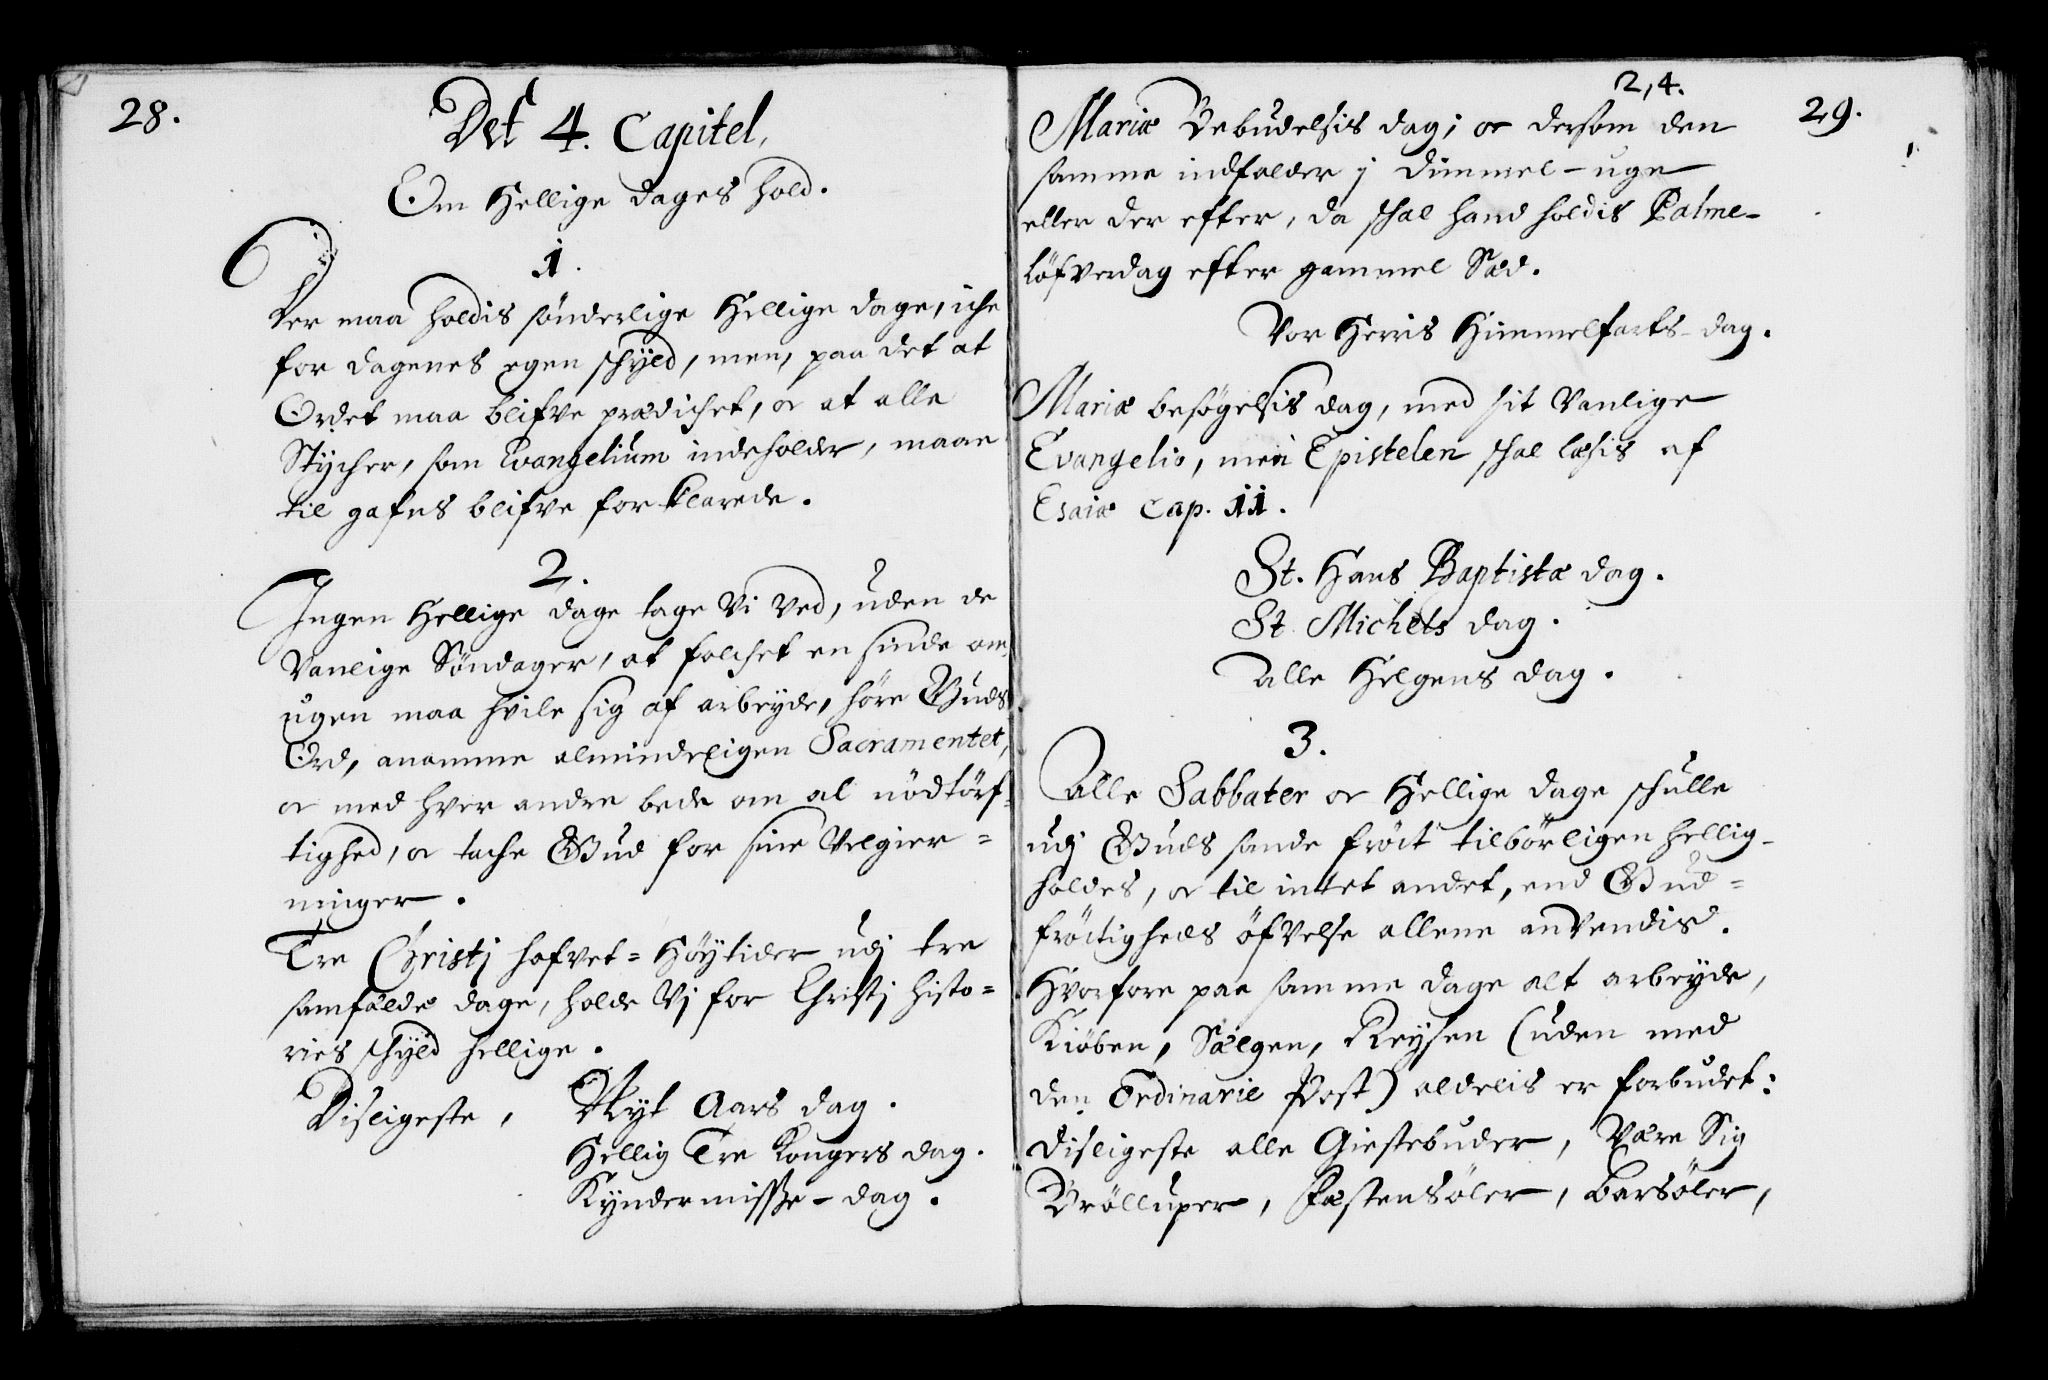 28.
Det 4. Capitel,
Om Hellige dages hold.
1.
Der maa holdis sönderlige Hellige dage, iche
for dagenes egen schyld, men, paa det at
Ordet maa blifve prædichet, oc at alle
Stycher, som Evangelium indeholder, maae
til gafns blifve forklarede.
2.
Ingen Hellige dage tage Vi ved, uden de
Vanlige Söndager, at folchet en sinde om
ugen maa hvile sig af arbeyde, höre Guds
Ord, anamme almindeligen Sacramentet,
oc med hver andre bede om al nödtörf-
tighed, oc tache Gud for sine Velgier=
ninger.
Tre Christj hofvet=Höytider udj tre
samfælde dage, holde Vj for Christj histo=
ries schyld hellige.
Disligeste, Nyt Aars dag.
Hellig Tre Kongers dag.
Kyndermisse-dag.
2,4.
29.
Mariæ Bebudelsis dag; oc dersom den
samme indfalder j Dimmel-uge
eller der efter, da schal hand holdis Palme-
löfverdag efter gammel Sæd.
Vor Herris Himmelfarts-dag.
Mariæ besögelsis dag, med sit Vanlige
Evangelio, men Epistelen schal læsis af
Esaiæ Cap. 11.
St. Hans Baptistæ dag.
St Michels dag.
Alle Helgens dag.
3.
Alle Sabbater oc Hellige dage schulle
udj Guds sande fröct tilbörligen hellig-
holdes, oc til intet andet, end Gud=
fröctigheds öfvelse allene anvendis.
Hvorfore paa samme dage alt arbeyde,
Kiöben, Sælgen, Reysen (uden med
den Ordinarie Post) aldelis er forbudet:
disligeste alle Giestebuder, Være Sig
Brölluper, Fæstensöler, Barsöler,